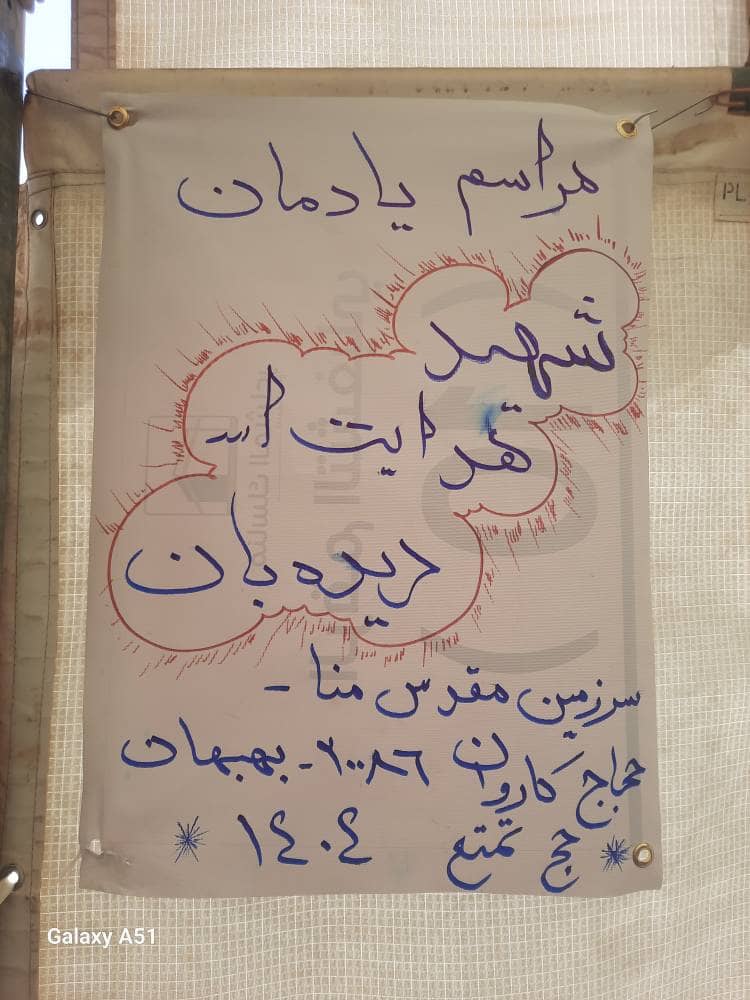 مراسم یادمان
شهید
هدایت اله
دیده بان
سرزمین مقدس منا -
حجاج کاروان ۲۰۰۸۶ - بهبهان
* حج تمتع ۱٤۰٤ *
PL
Galaxy A51